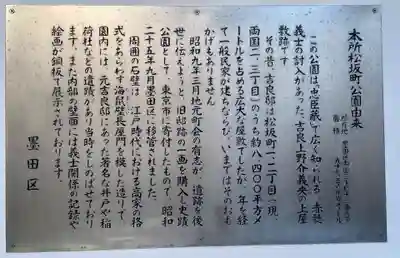 本所松坂町公園由来
この公園は「忠臣蔵」で広く知られる赤穂
義士の討入があった、吉良上野介義央の上屋
敷跡です
その昔、吉良邸は松坂町一、二丁目(現、
両国二、三丁目)のうち約八、四〇〇平方メ
ートルを占める広大な屋敷でしたが、年を経
て一般民家が建ちならび、いまではそのおも
かげもありません
昭和九年三月地元町会の有志が、遺跡を後
世に伝えようと、旧邸跡の一画を購入し史蹟
公園として、東京市に寄付したもので、昭和
二十五年九月墨田区に移管されました。
周囲の石壁は、江戸時代における高家の格
式をあらわす海鼠壁長屋門を模した造りで
園内には、元吉良邸にあった著名な井戸や稲
荷社などの遺蹟があり当時をしのばせており
ます。また内部の壁面には義士関係の記録や
絵画が銅板で展示されております。
墨田区